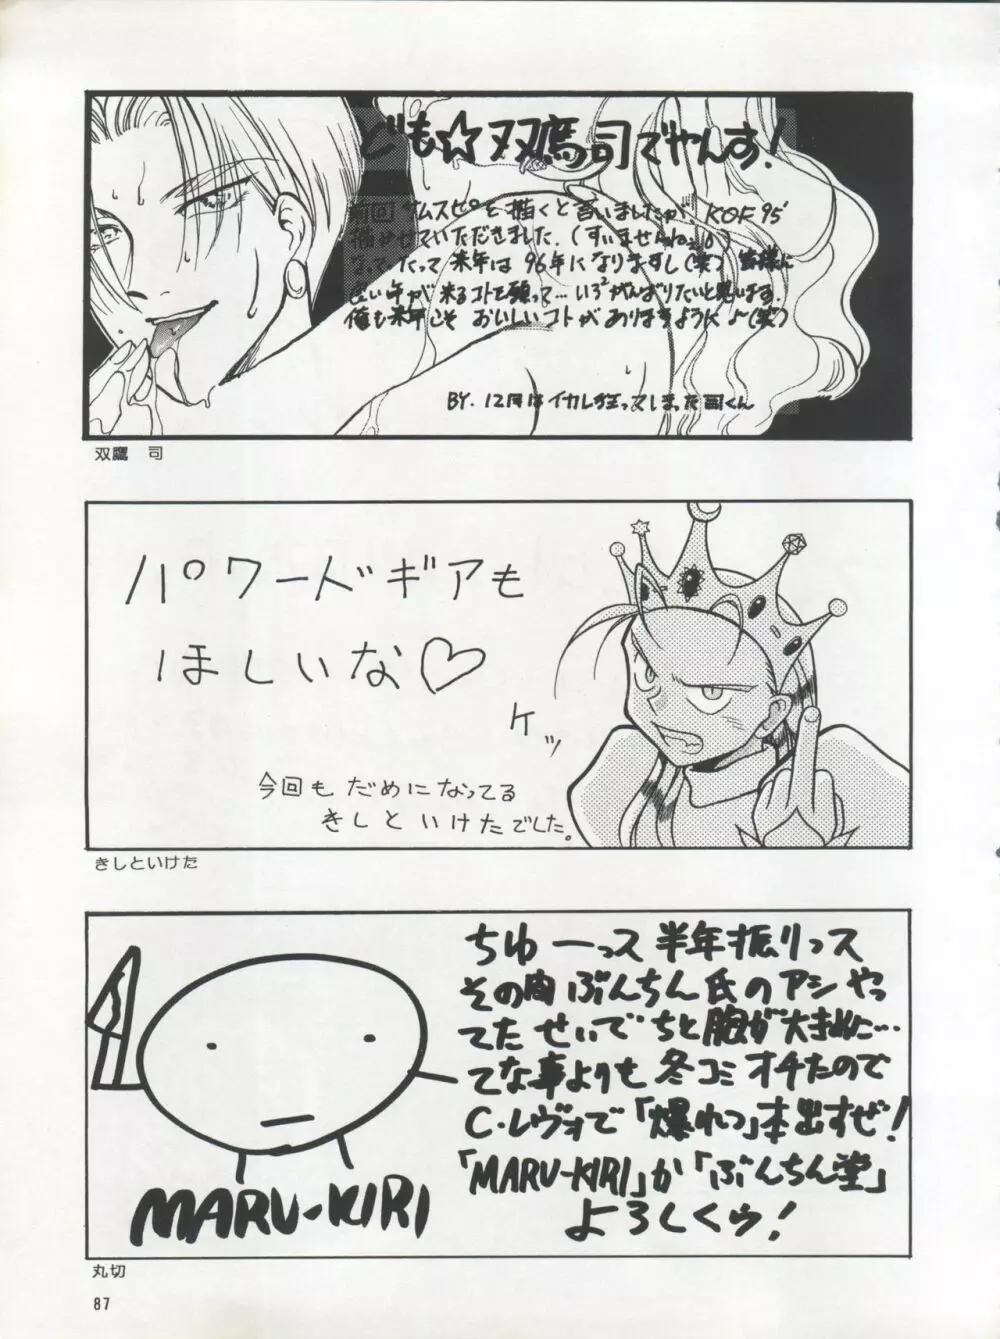 ども☆双鷹司でやんす!
前回サムスピを描くと言いましたが、KOF95'
描かせていただきました.(すいませんねェ。)
だって来年は96年になりますし(笑) 皆様に
良い年が来るコトを願って…いろ²がんばりたいと思います.
俺も来年こそおいしいコトがありますように♪～(笑)
BY.12月はイカレ狂ってしまった司くん
双鷹 司
パワードギアも
ほしいな♡
ケッ
今回もだめになってる
きしといけたでした。
きしといけた
ちゅーっス 半年振りっス
その間ぶんちん氏のアシやっ
てたせいでちと胸が大きめに…
てな事よりも冬コミオチたので
C・レヴォで「爆れつ」本出すぜ!
「MARU-KIRI」か「ぶんちん堂」
よろしくゥ!
MARU-KIRI
丸切
87